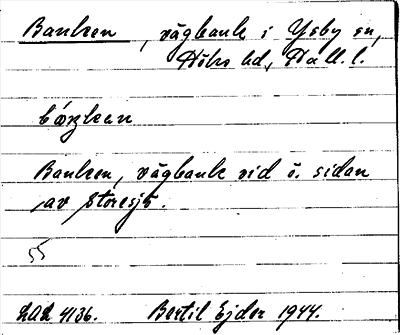 Banken, vägbank i Ysby sn,
Höks hd, Hall. l.
báŋkan
Banken, vägbank vid ö. sidan
av Storesjö.
55
LAL 4136. Bertil Ejder 1944.